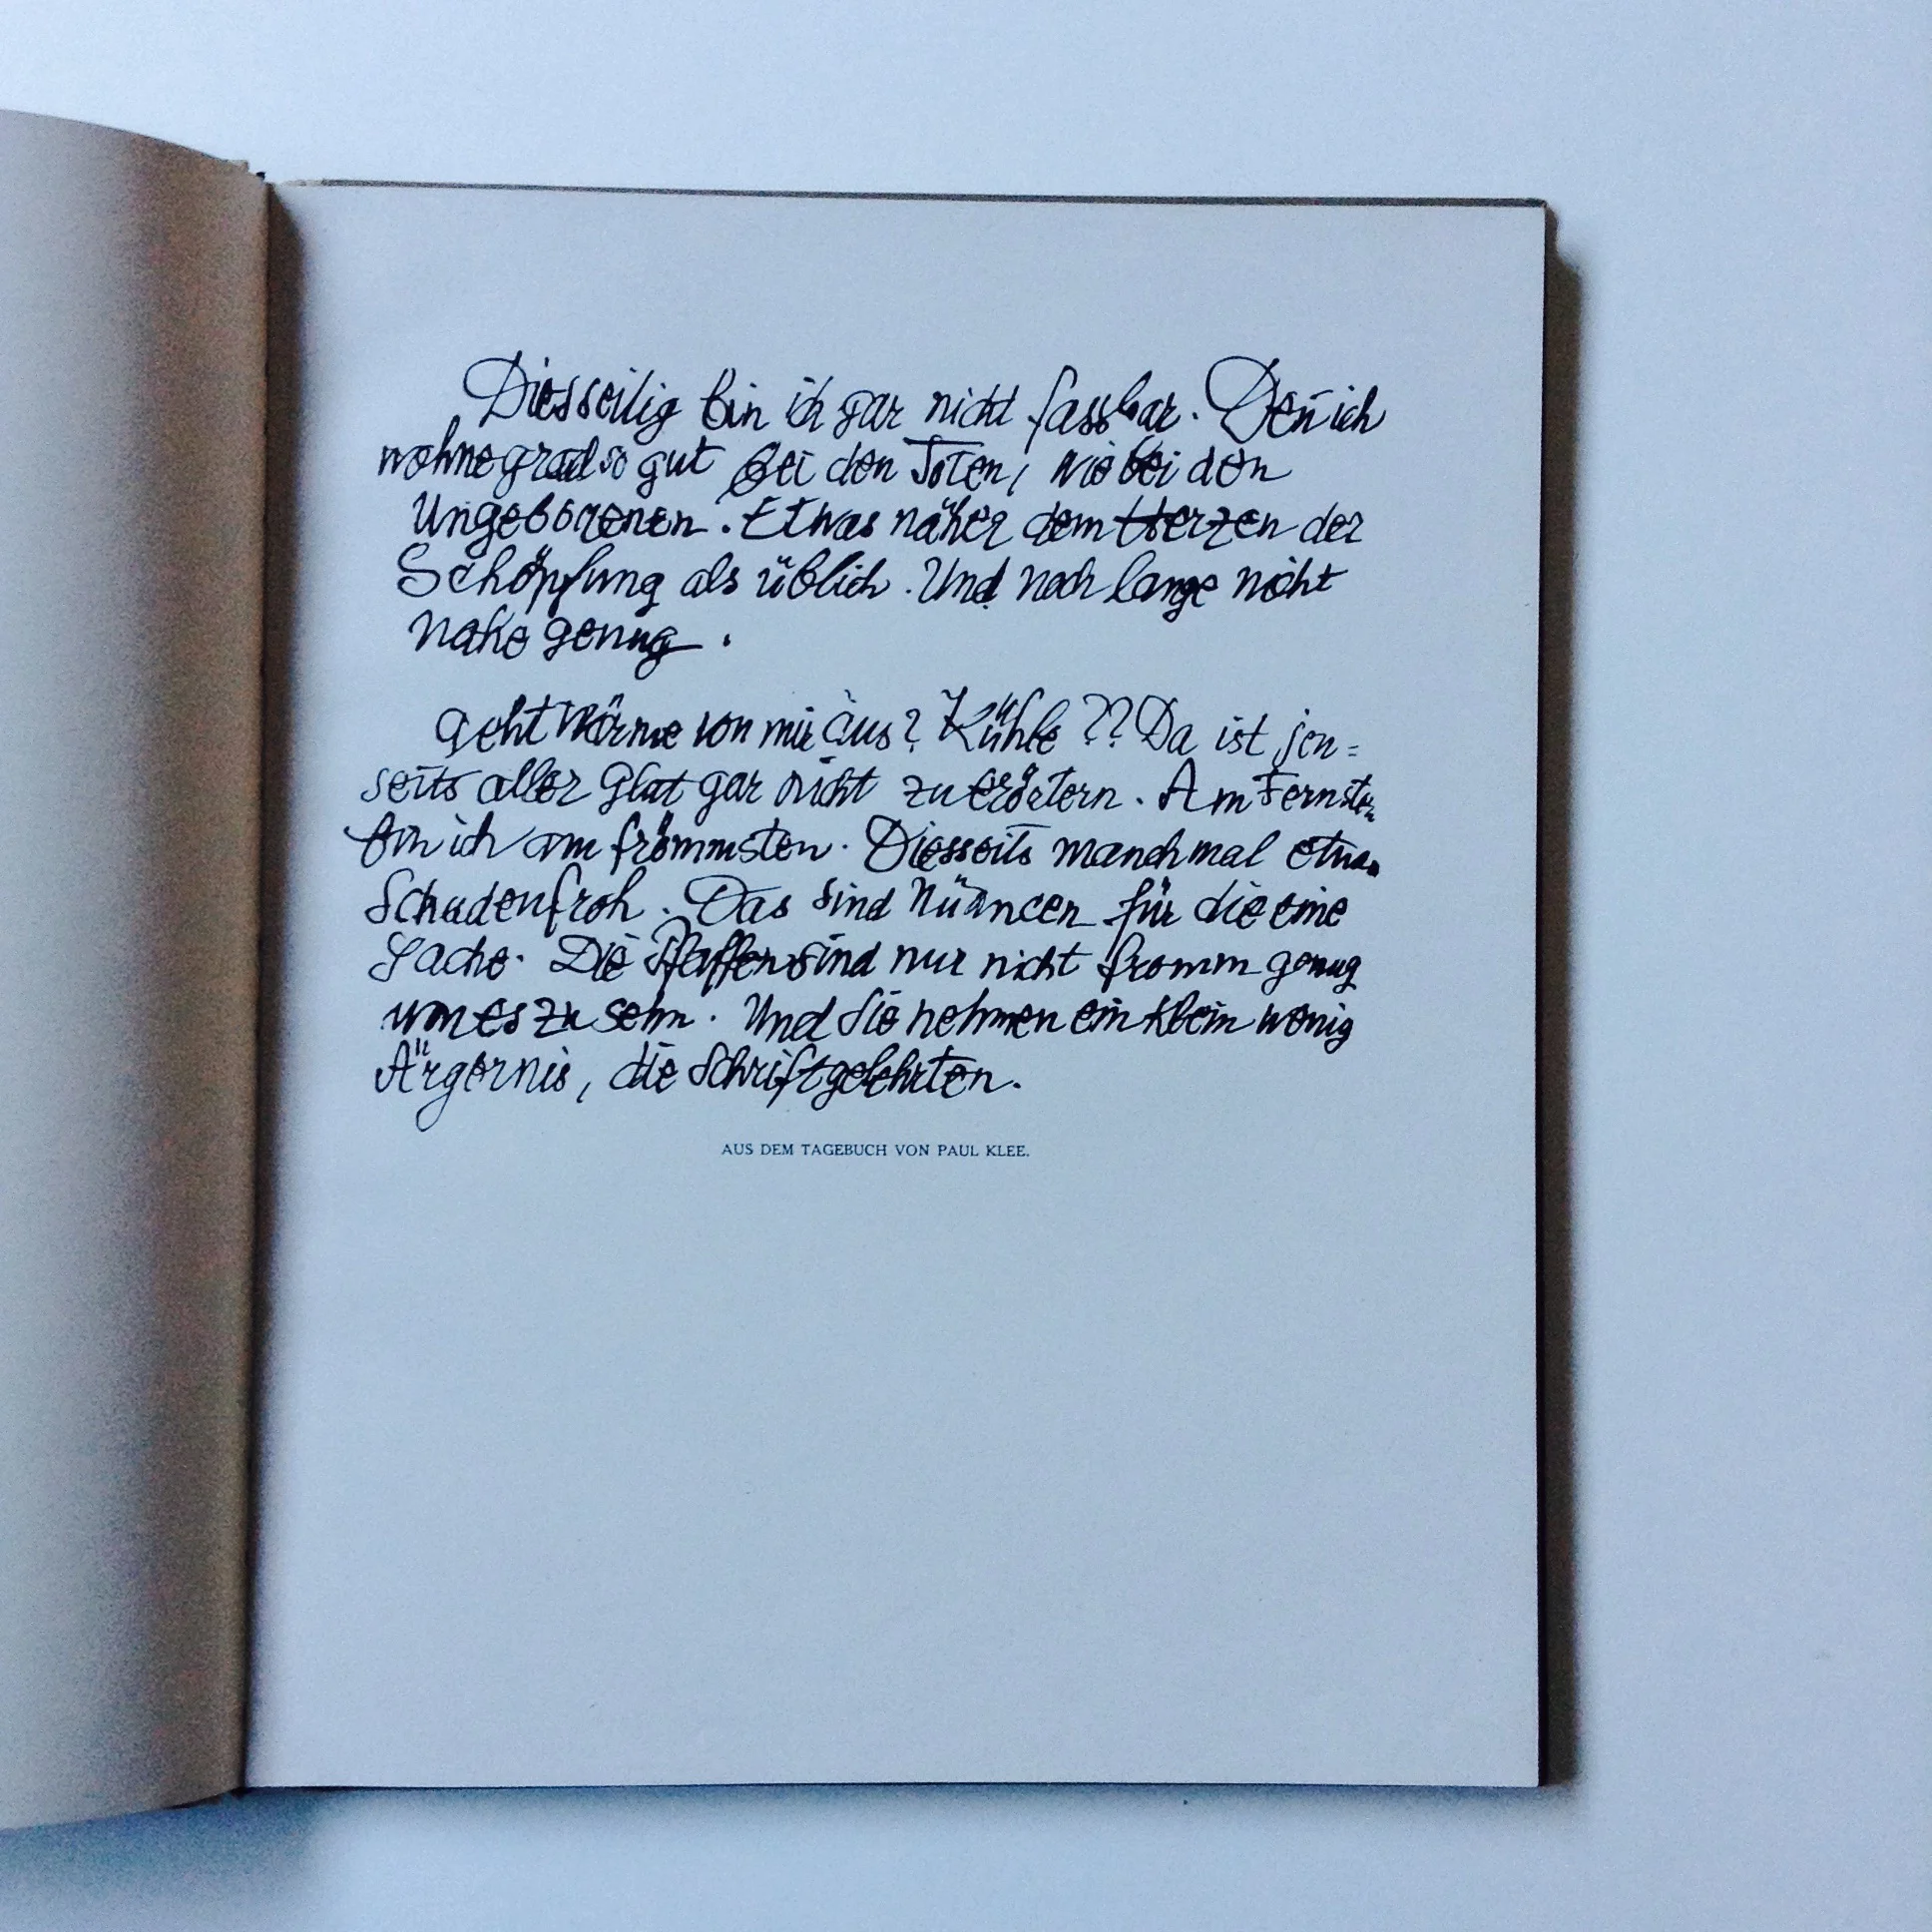 Diesseitig bin ich gar nicht fassbar. Den̄ ich
wohne grad so gut bei den Toten, wie bei den
Ungeborenen. Etwas näher dem Herzen der
Schöpfung als üblich. Und noch lange nicht
nahe genug.
Geht Wärme von mir aus? Kühle?? Da ist jen=
seits aller Glut gar nicht zu erörtern. Am Fernsten
bin ich am frömmsten. Diesseits manchmal etwas
Schadenfroh. Das sind Nüancen für die eine
Sache. Die Pfaffen sind nur nicht fromm genug
um es zu sehn. Und sie nehmen ein klein wenig
Ärgernis, die Schriftgelehrten.
AUS DEM TAGEBUCH VON PAUL KLEE.